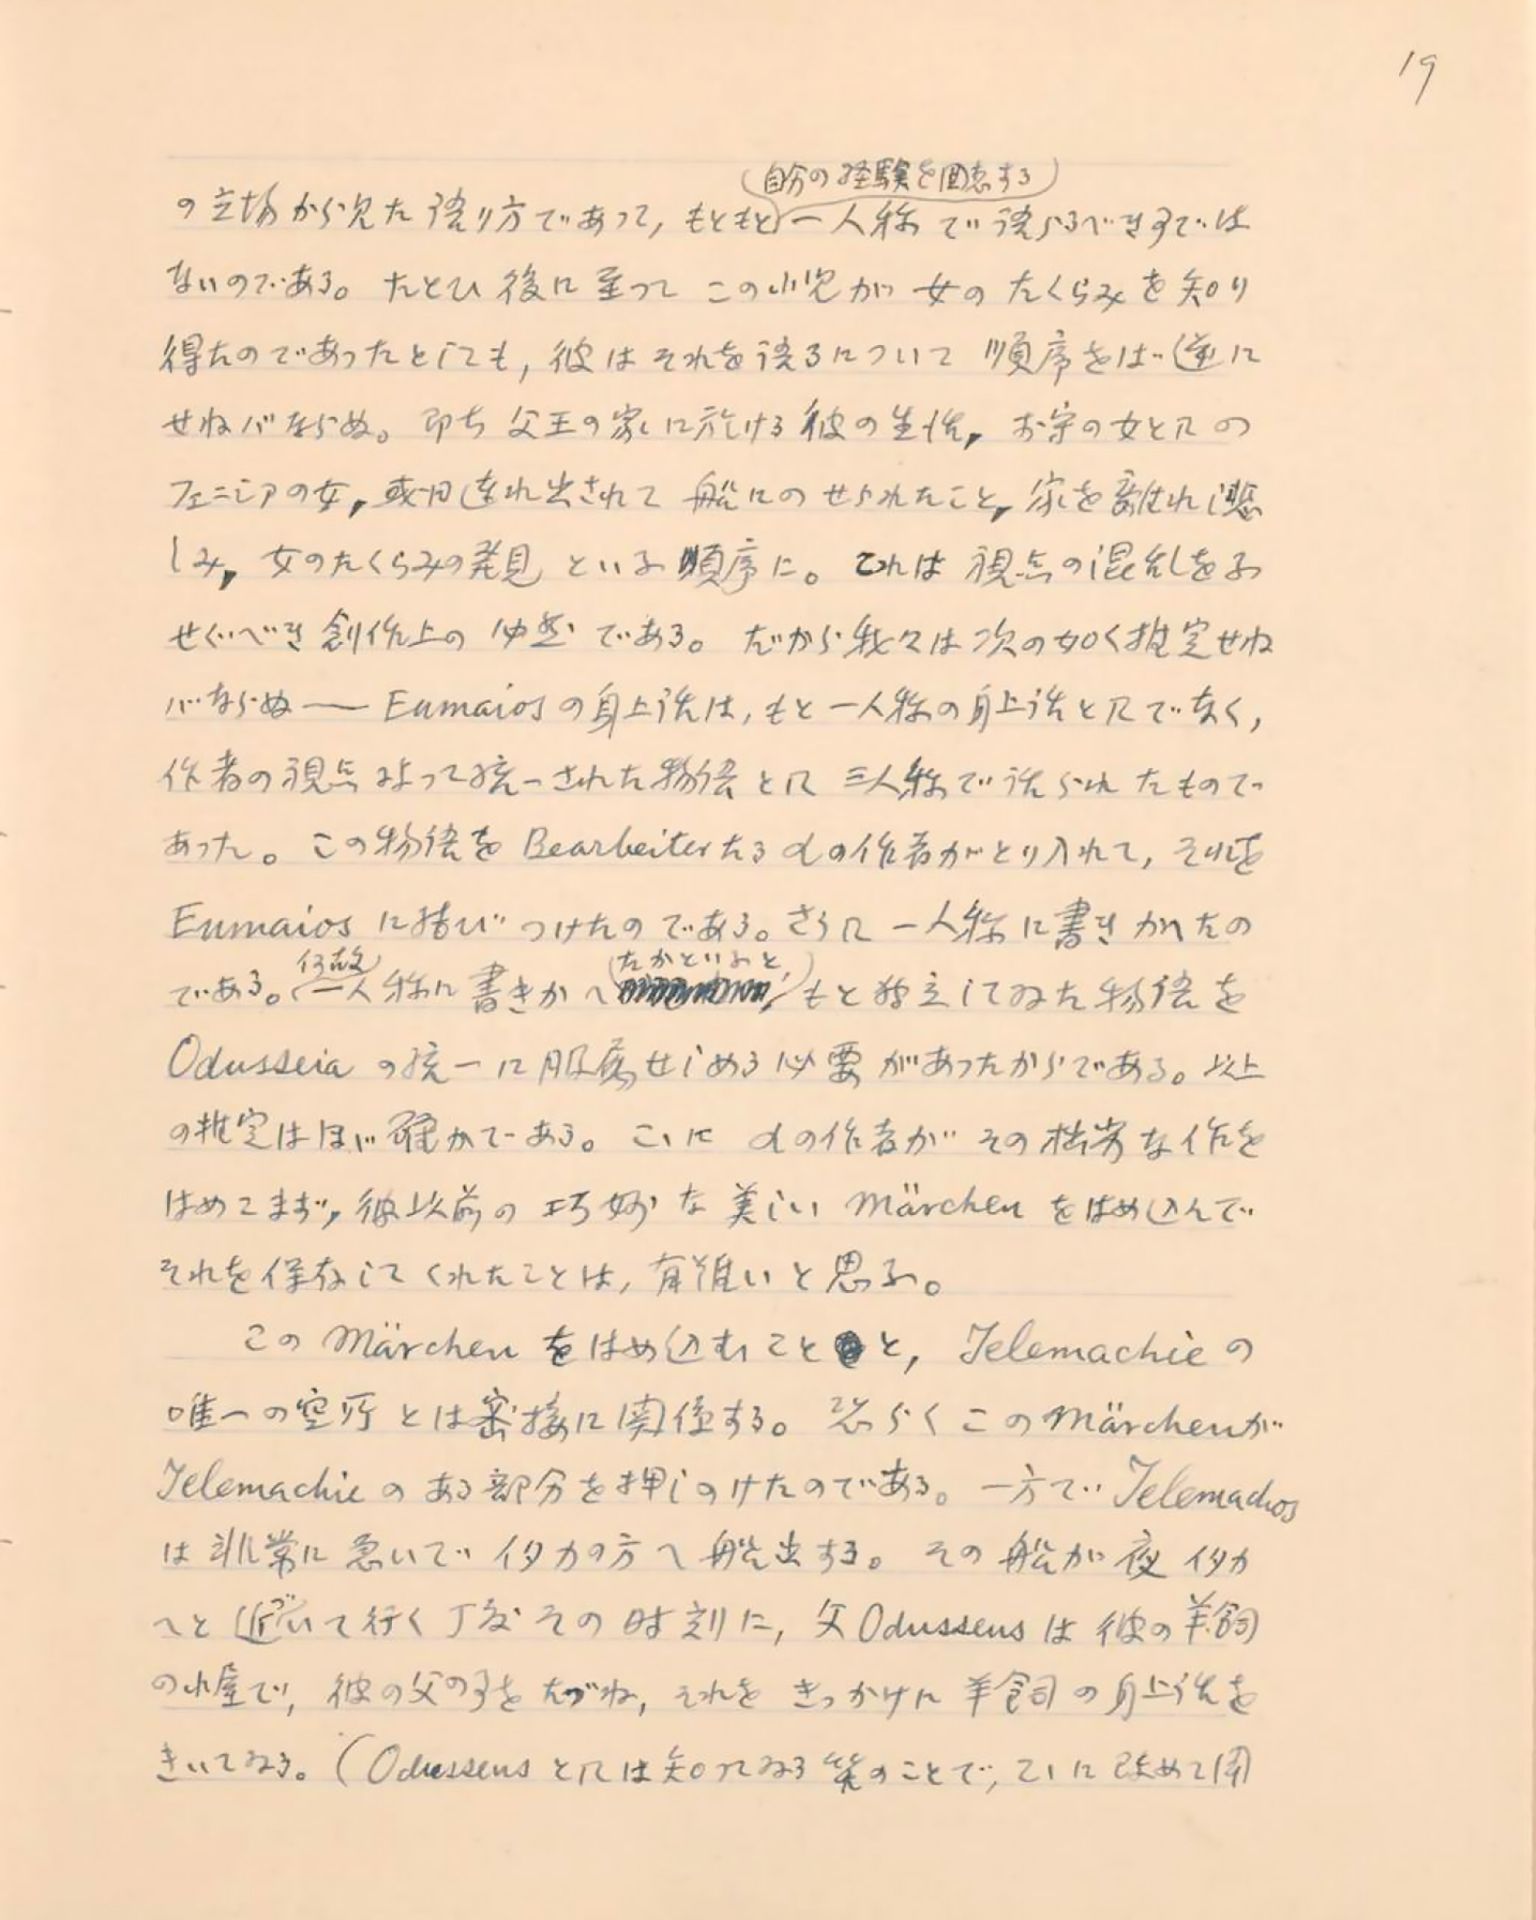 19
自分の経験を回想する
の立場から見た語り方であって, もともと一人称で語らるべき事では
ないのである。たとひ後に至って この小児が 女の たくらみを知り
得たのであったとしても, 彼は それを語るについて 順序をば逆に
せねバならぬ。即ち 父王の家に於ける彼の生活, お守の女としての
フェニシアの女, 或日連れ出されて 船にのせられたこと, 家を離れし悲
しみ, 女のたくらみの発見 といふ順序に。これは 視点の混乱をふ
せぐべき 創作上の である。だから我々は次の如く推定せね
バならぬ — Eumaiosの身上話は, もと一人称の身上話としてでなく,
作者の視点によって統一された物語として 三人称で話られたもので
あった。この物語を Bearbeiterたるαの作者がとり入れて, それを
Eumaiosに結びつけたのである。さらに一人称に書きかへたの
である。何故一人称に書きかへたかといふと, もと独立してゐた物語を
Odusseiaの統一に服属せしめる必要があったからである。以上
の推定はほゞ確かである。こゝに αの作者が その拙劣な作を
はめてまず, 彼以前の 巧妙な 美しい Märchenをはめ込んで
それを保存してくれたことは, 有難いと思ふ。
このMärchenをはめ込むことと, Telemachieの
唯一の空所とは密接に関係する。恐らくこのMärchenが
Telemachieのある部分を押しのけたのである。一方で Telemachos
は非常に急いでイタカの方へ船出する。その船が夜 イタカ
へと近づいて行く丁度その時刻に, 父Odusseusは彼の羊飼
の小屋で, 彼の父の事をたづね, それをきっかけに羊飼の身上話を
きいてゐる。(Odusseusとしては知ってゐる筈のことで, こゝに改めて聞